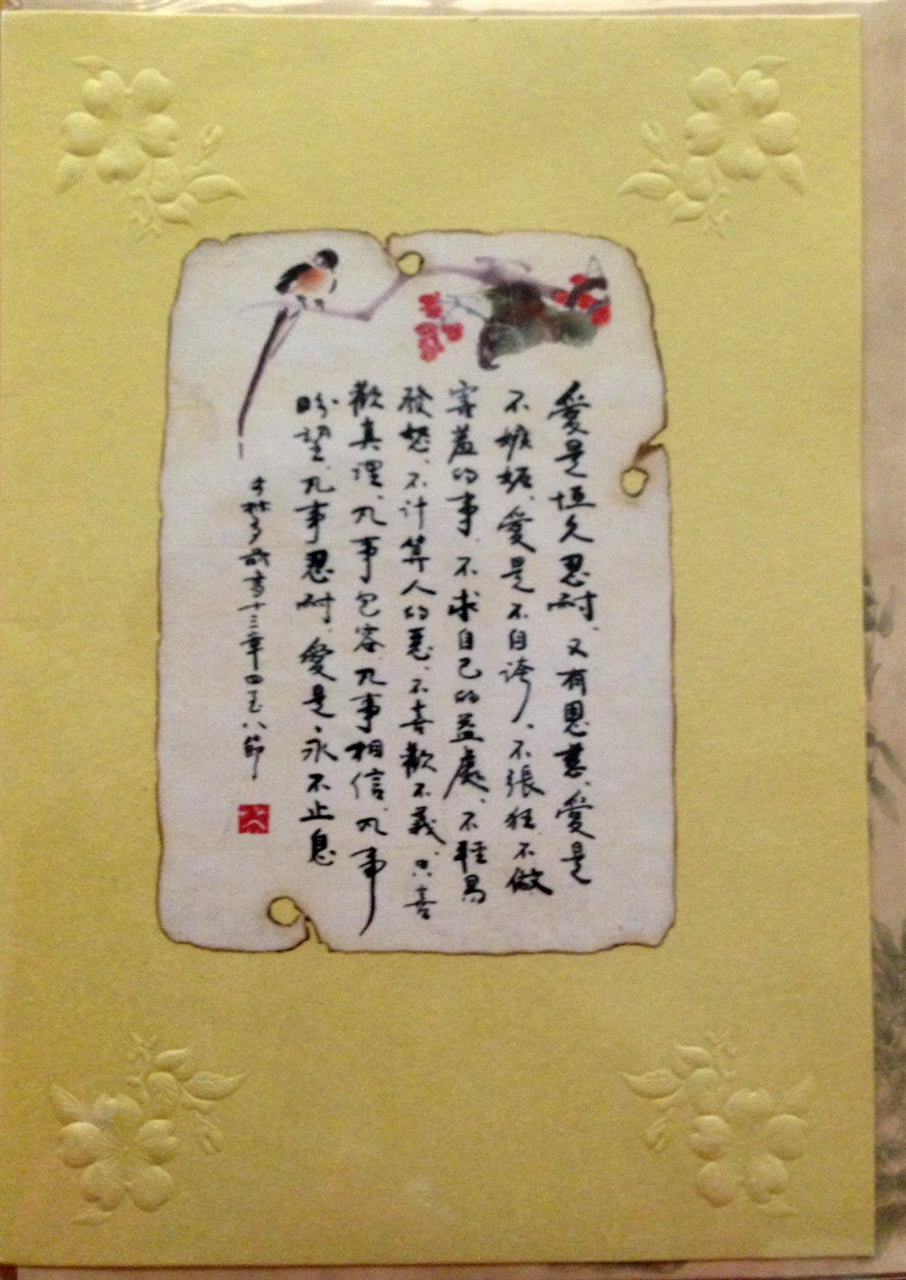 愛是恒久忍耐、又有恩慈、愛是
不嫉妬、愛是不自誇、不張狂、不做
害羞的事、不求自己的益處、不輕易
發怒、不計算人的惡、不喜歡不義、只喜
歡真理、凡事包容、凡事相信、凡事
盼望、凡事忍耐、愛是、永不止息
哥林多前書十三章四至八節